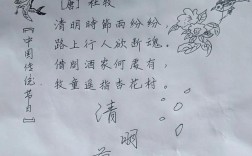 [唐] 杜牧
清明時節雨紛紛
路上行人欲斷魂,
借問酒家何處有,
牧童遥指杏花村。
『中国传统节日』
清
明